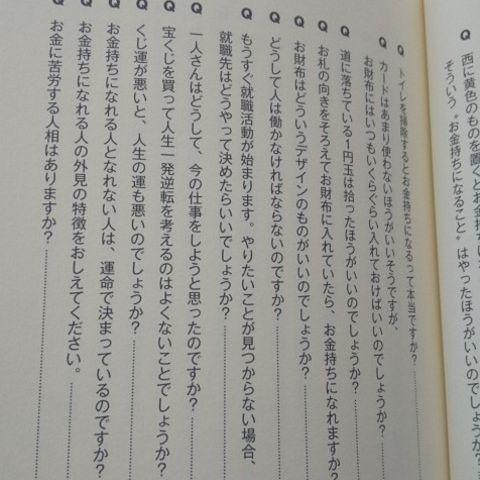 西に黄色のものを置くとお金持ち
そういう〝お金持ちになること〟はやったほうがいい
Q トイレを掃除するとお金持ちになるって本当ですか?
Q カードはあまり使わないほうがいいそうですが、
お財布にはいつもいくらぐらい入れておけばいいのでしょうか?
Q 道に落ちている1円玉は拾ったほうがいいのでしょうか?
Q お札の向きをそろえてお財布に入れていたら、お金持ちになれますか?
Q お財布はどういうデザインのものがいいのでしょうか?
Q どうして人は働かなければならないのですか?
Q もうすぐ就職活動が始まります。やりたいことが見つからない場合、
就職先はどうやって決めたらいいでしょうか?
Q 一人さんはどうして、今の仕事をしようと思ったのですか?
Q 宝くじを買って人生一発逆転を考えるのはよくないことでしょうか?
Q くじ運が悪いと、人生の運も悪いのでしょうか?
Q お金持ちになれる人となれない人は、運命で決まっているのですか?
Q お金持ちになれる人の外見の特徴をおしえてください。
Q お金に苦労する人相はありますか?